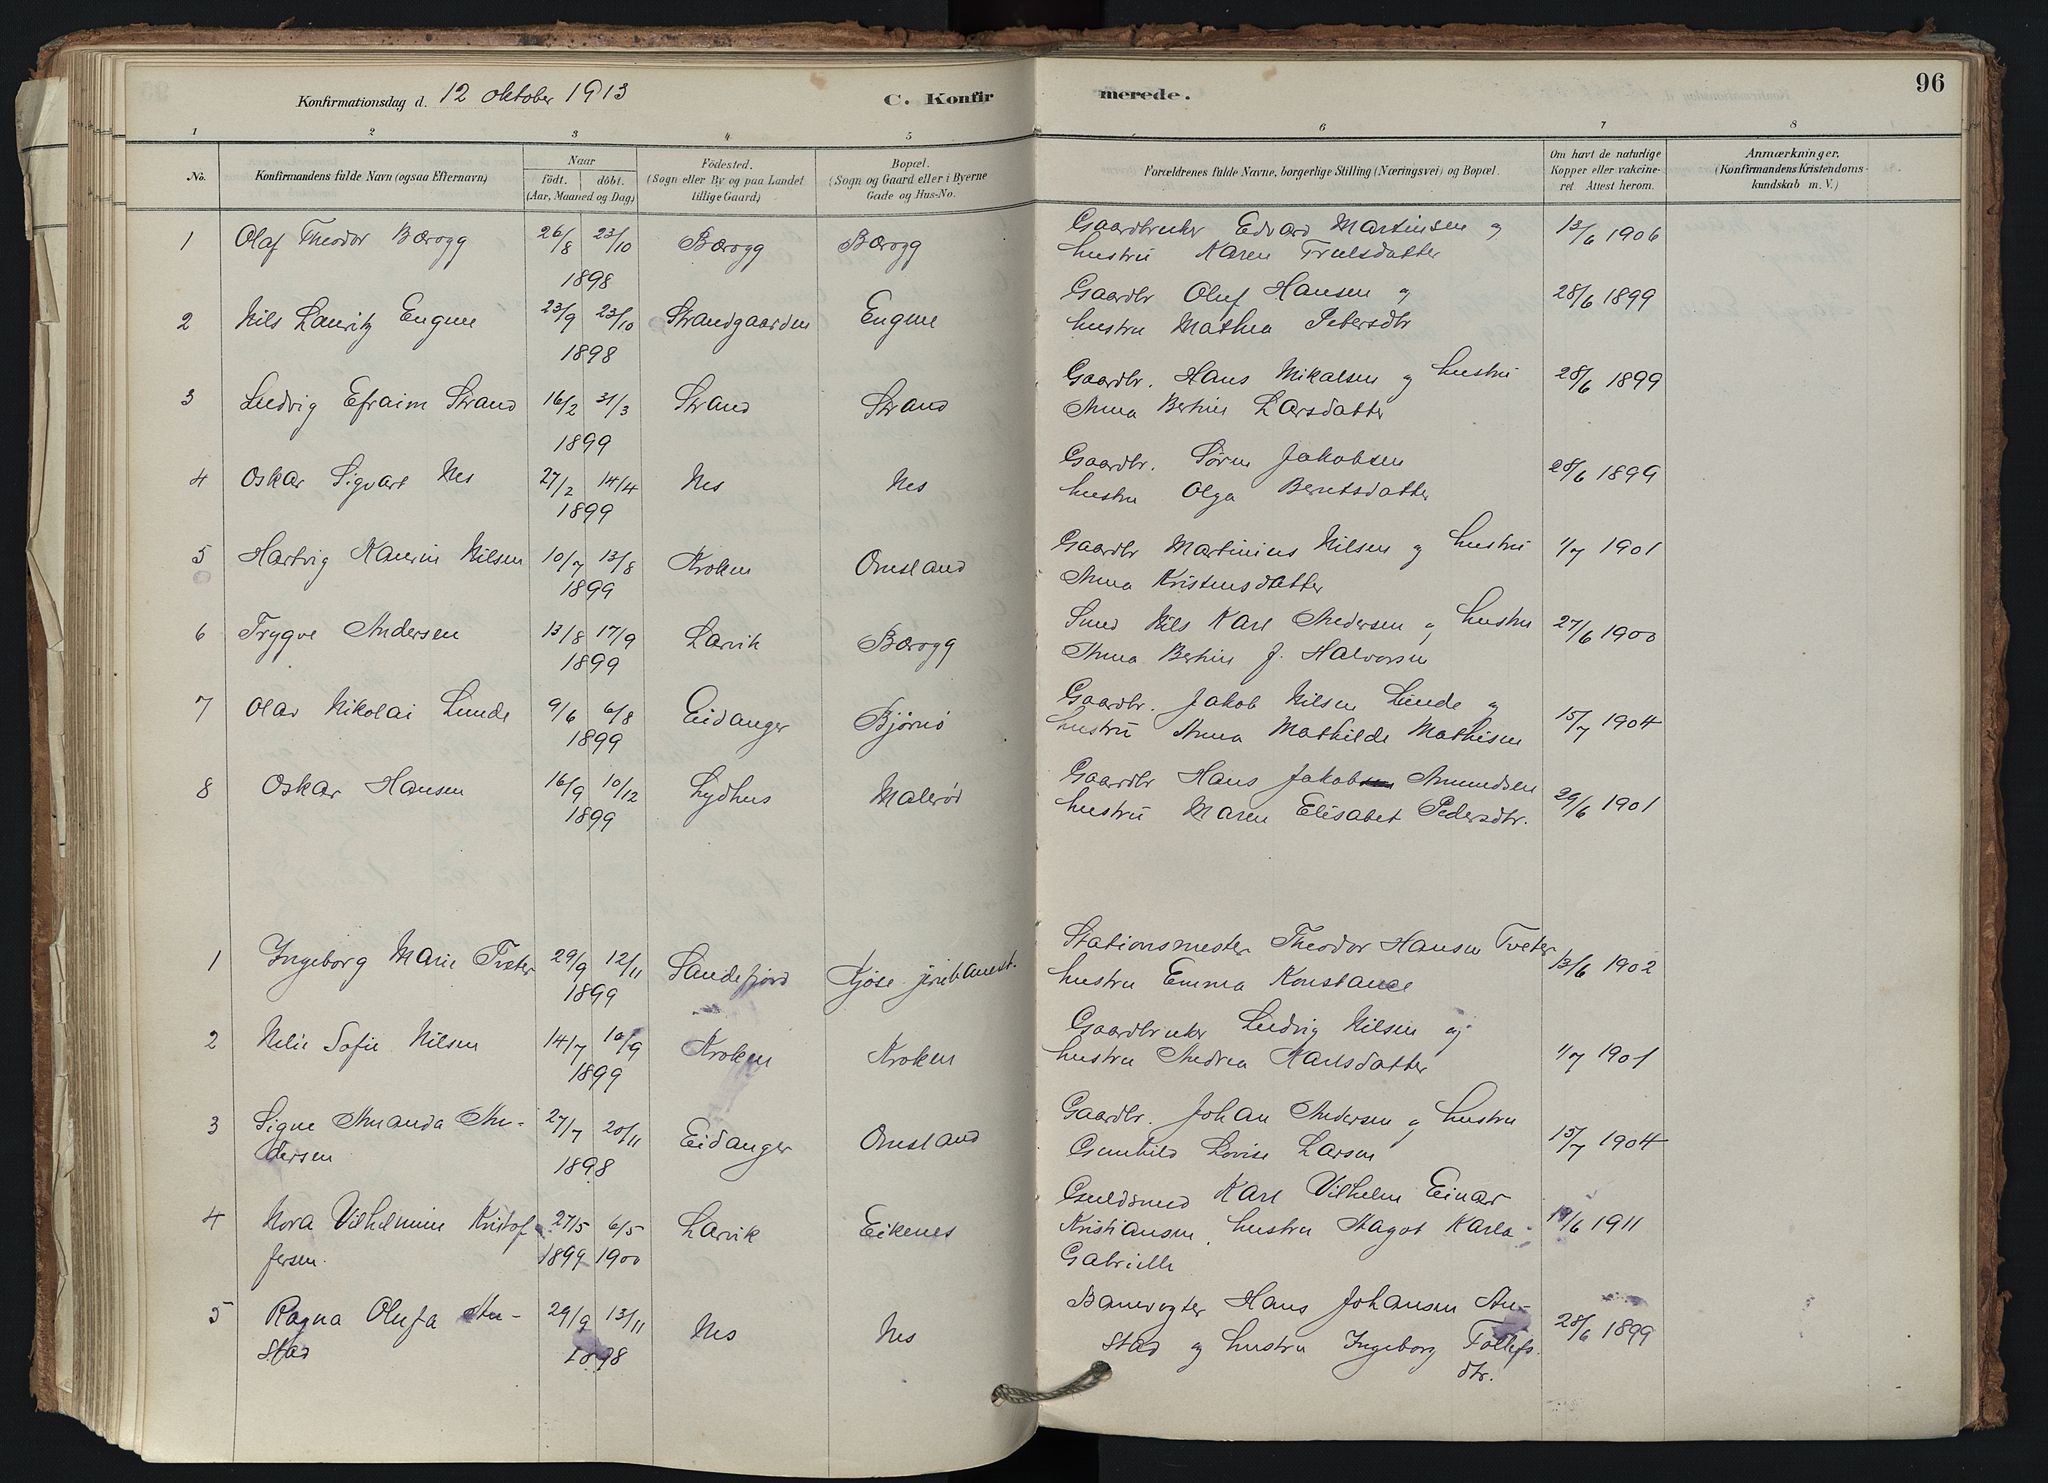 96
Konfirmationsdag d. 12 oktober 1913 C. Konfir merede.
1 2 3 4 5 6 7 8
No. Konfirmandens fulde Navn (ogsaa Efternavn) Naar födt. döbt. (Aar, Maaned og Dag) Födested. (Sogn eller By og paa Landet tillige Gaard) Bopæl. (Sogn og Gaard eller i Byerne Gade og Hus-No. Forældrenes fulde Navne, borgerlige Stilling (Næringsvei) og Bopæl. Om havt de naturlige Kopper eller vakcineret Attest herom. Anmærkninger. (Konfirmandens Kristendomskundskab m. V.)
1 Olaf Theodor Bærogg 26/8 23/10 Bærogg Bærogg Gaardbruker Edvard Martinsen og 13/6 1906
1898 hustru Karen Trulsdatter
2 Nils Lauritz Eugene 23/9 23/10 Strandgaarden Gaardbr Oluf Hansen og 28/6 1899
1898 hustru Mathea Petersdtr
3 Ludvig Efraim Strand 16/2 31/3 Strand Strand Gaardbr. Hans Mikalsen og hustru 28/6 1899
1899 Anna Bertine Larsdatter
4 Oskar Sigvart Nes 27/2 14/4 Nes Nes Gaardbr. Søren Jakobsen 28/6 1899
1899 hustru Olga Berntsdatter
5 Hartvig Nilsen 10/7 13/8 Kroken Omsland Gaardbr Martinius Nilsen og hustru 1/7 1901
1899 Anna Kristensdatter
6 Trygve Andersen 13/8 17/9 Larvik Bærogg Smed Nils Karl Andersen og hustru 27/6 1900
1899 Anna Bertine f. Halvorsen
7 Olav Nikolai Lunde 9/6 6/8 Eidanger Bjørnø Gaardbr. Jakob Nilsen Lunde og 15/7 1904
1899 hustru Anna Mathilde Mathisen
8 Oskar Hansen 16/9 10/12 Lydhus Malerød Gaardbr Hans Jakob Amundsen 29/6 1901
1899 hustru Maren Elisabet Pedersdtr.
1 Ingeborg Marie Tveter 29/9 12/11 Sandefjord Kjøse jernbanest. Stationsmester Theodor Hansen Tveter 13/6 1902
1899 hustru Emma Konstance
2 Nelie Sofie Nilsen 14/7 10/9 Kroken Kroken Gaardbruker Ludvig Nilsen og 1/7 1901
1899 hustru Andrea Karlsdatter
3 Signe Amanda An- 27/7 20/11 Eidanger Omsland Gaardbr. Johan Andersen og hustru 15/7 1904
dersen 1898 Gunhild Lovise Larsen
4 Nora Vilhelmine Kristof 27/5 6/5 Larvik Eikenes Guldsmed Karl Vilhelm Einar 19/6 1911
fersen. 1899 1900 Kristiansen, hustru Dagot Karla
Gabrielle
5 Ragna Olufa An- 29/9 13/11 Nes Nes Banevogter Hans Johansen An- 28/6 1899
stad 1898 stad og hustru Ingeborg Tollefs
dtr.